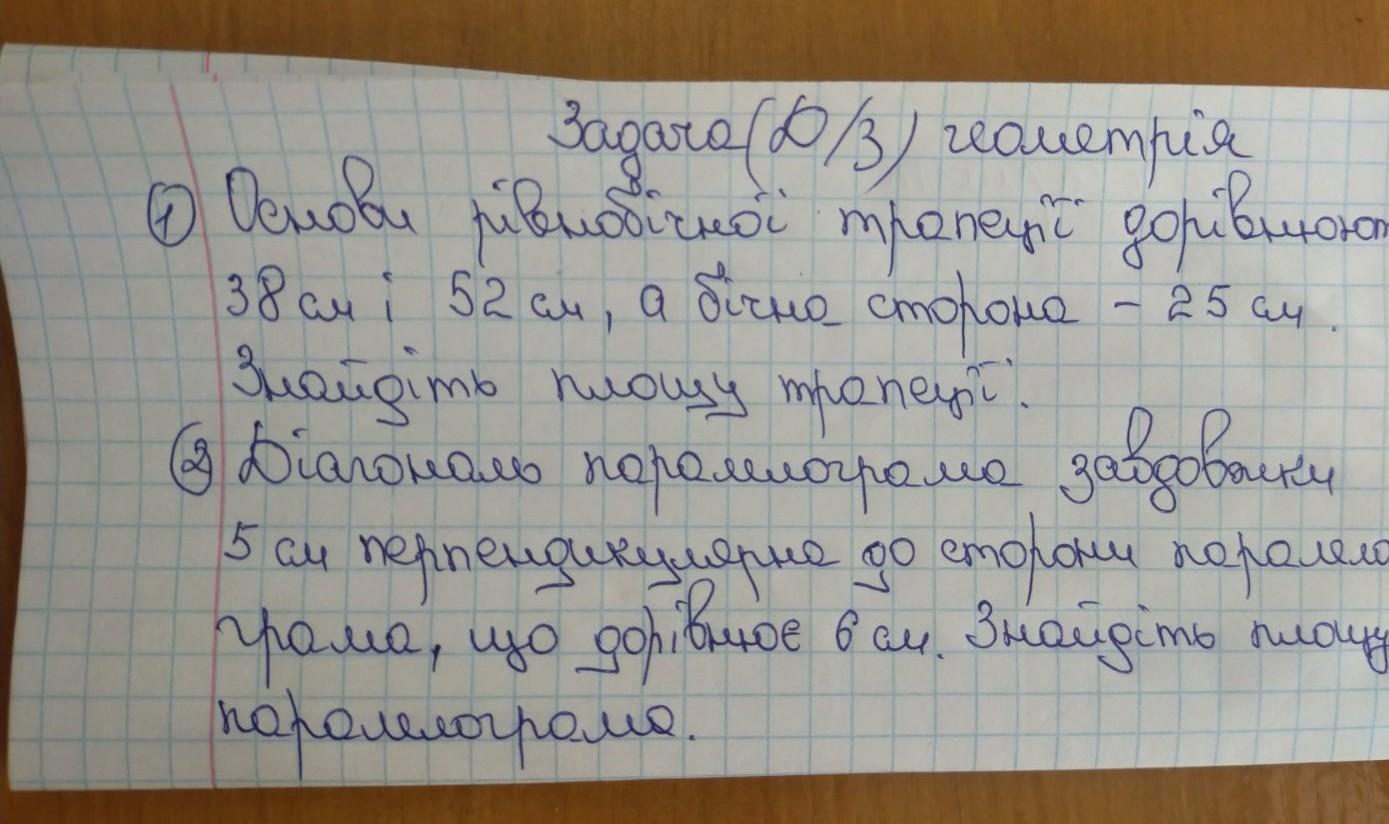 Задача (Д/З) геометрія
① Основи рівнобічної трапеції дорівнюют
38 см і 52 см, а бічна сторона – 25 см.
Знайдіть площу трапеції.
② Діагональ паралелограма завдовжки
5 см перпендикулярна до сторони парарело
грама, що дорівнює 6 см. Знайдіть площу
паралелограма.